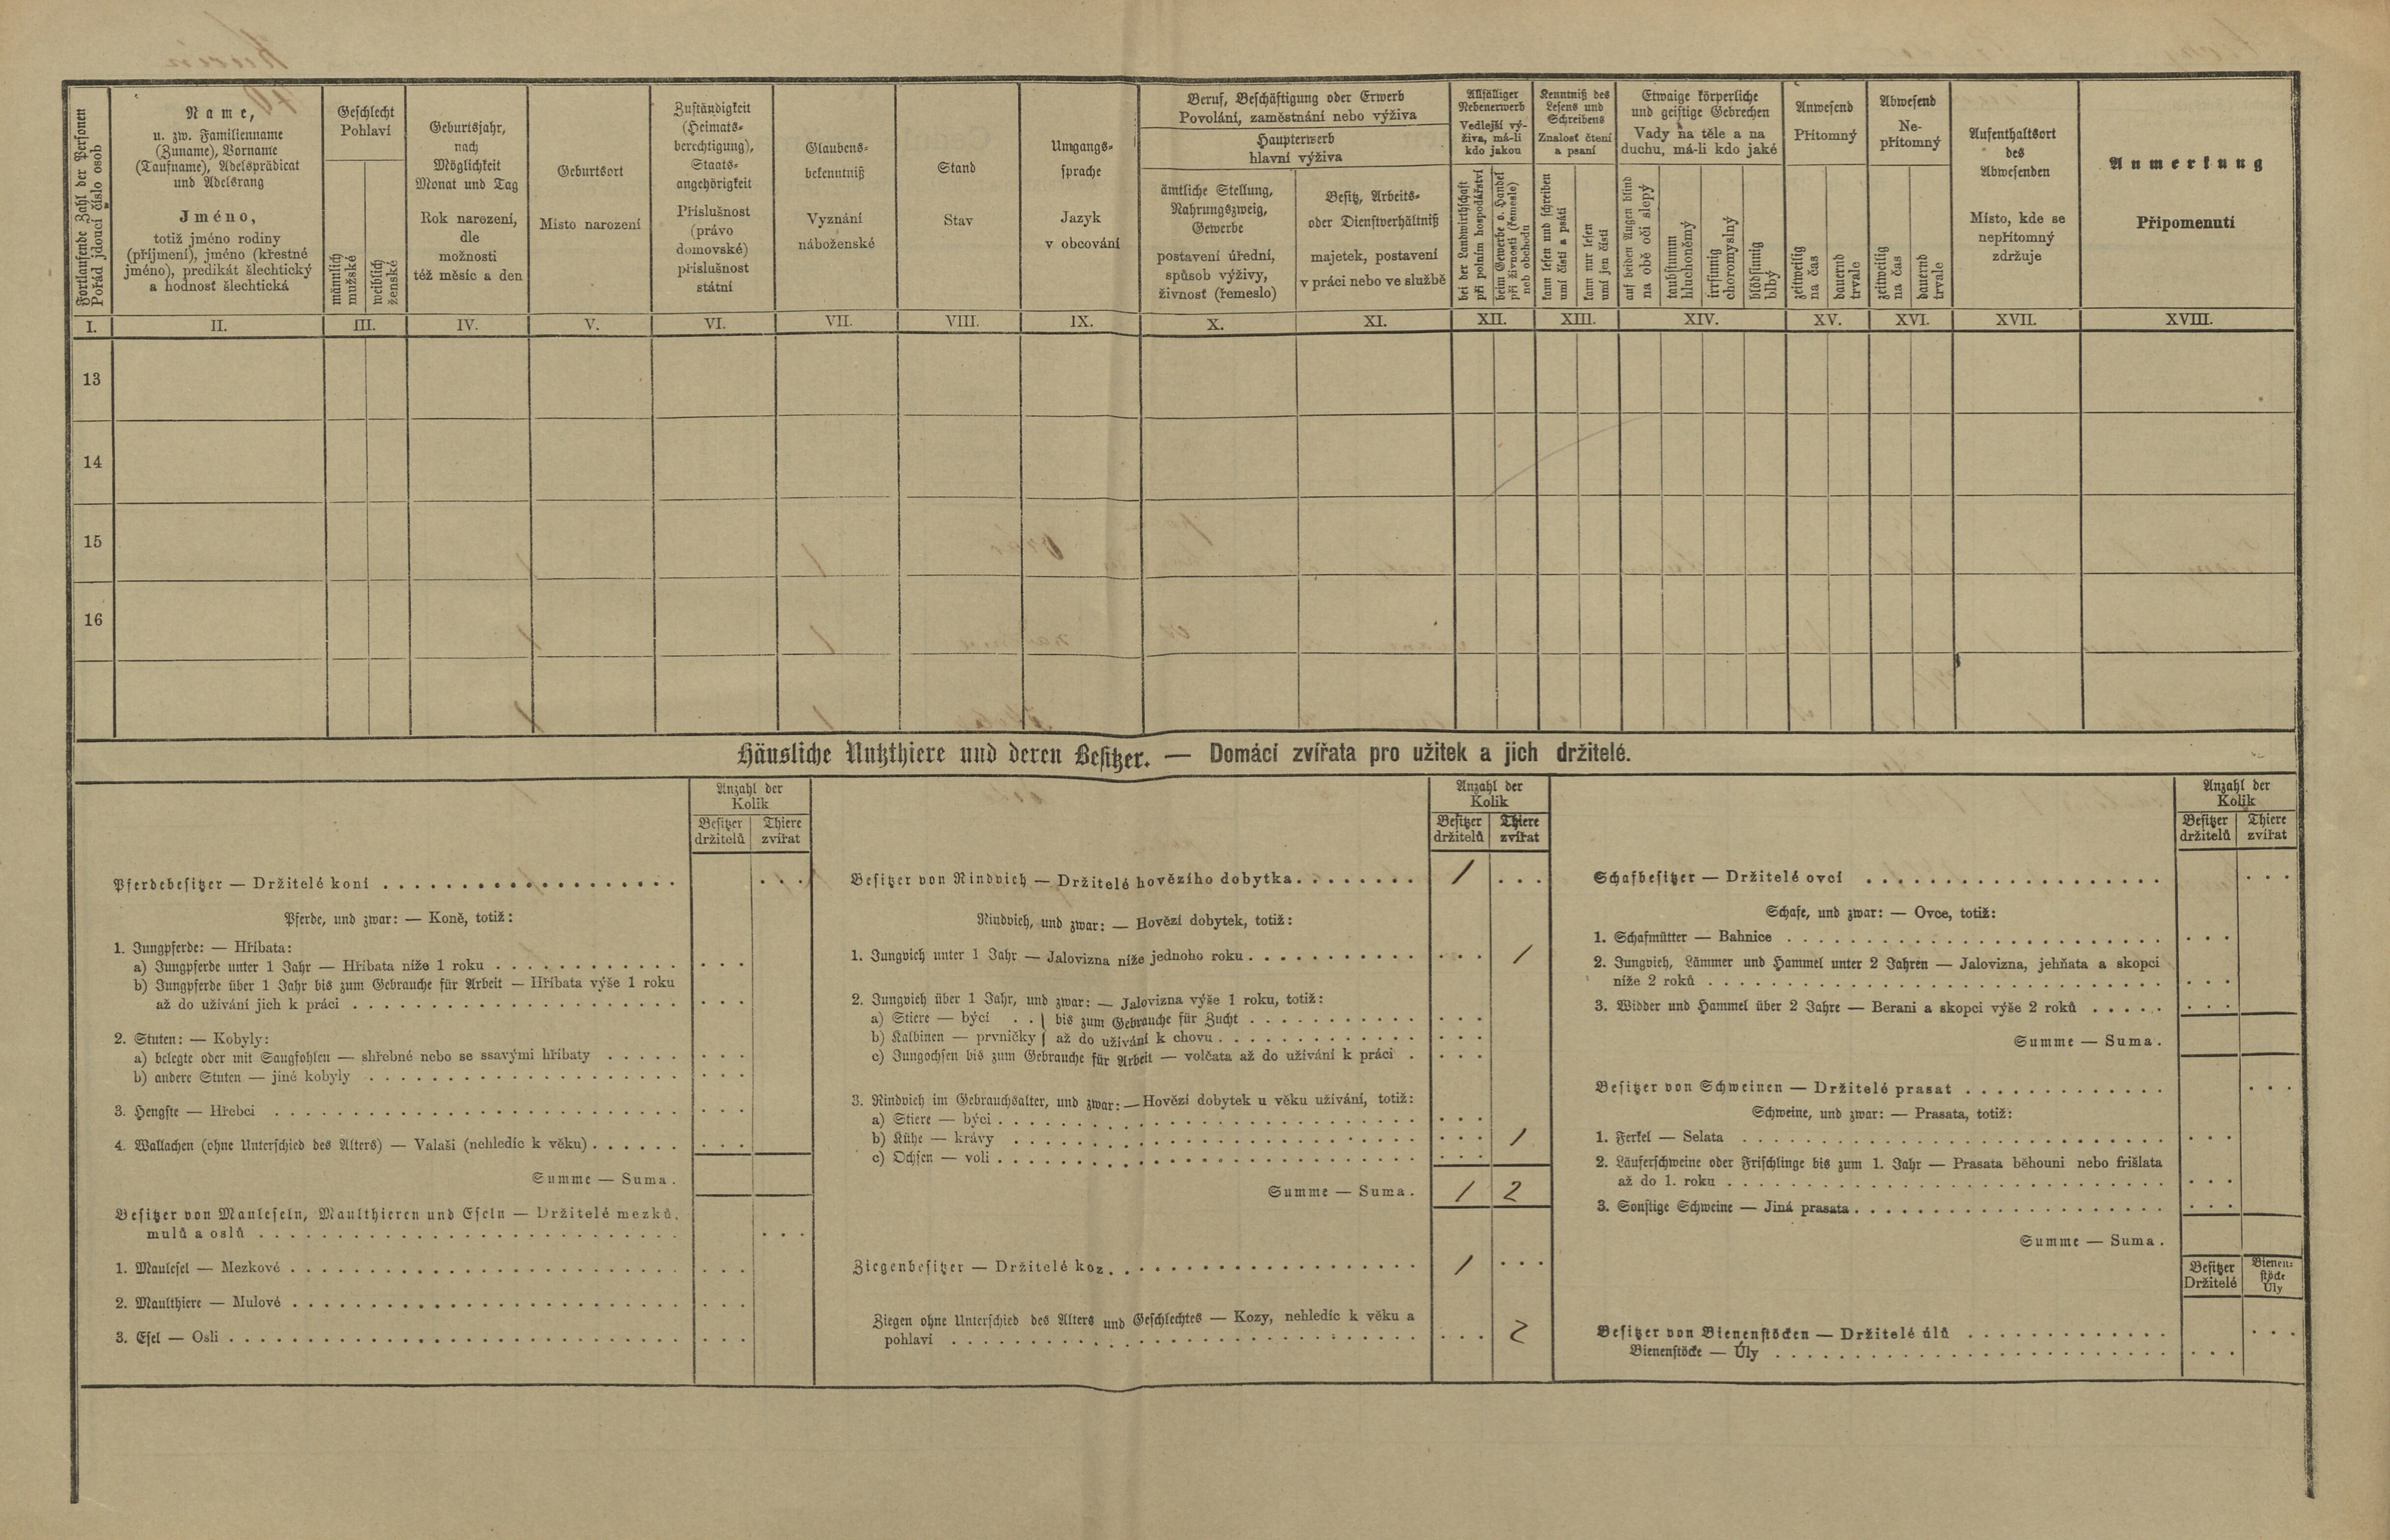 Fortlaufende Zahl der Personen
Pořád jdoucí číslo osob
Name,
u. zw. Familienname
(Zuname), Vorname
(Taufname), Adelsprädicat
und Adelsrang
Jméno,
totiž jméno rodiny
(příjmení), jméno (křestné
jméno), predikát šlechtický
a hodnosť šlechtická
Geschlecht
Pohlaví
männlich
mužské
weiblich
ženské
Geburtsjahr,
nach
Möglichkeit
Monat und Tag
Rok narození,
dle
možnosti
též měsíc a den
Geburtsort
Místo narození
Zuständigkeit
(Heimats-
berechtigung),
Staats-
angehörigkeit
Příslušnost
(právo
domovské)
příslušnost
státní
Glaubens-
bekenntniß
Vyznání
náboženské
Stand
Stav
Umgangs-
sprache
Jazyk
v obcování
Beruf, Beschäftigung oder Erwerb
Povolání, zaměstnání nebo výživa
Haupterwerb
hlavní výživa
ämtliche Stellung,
Nahrungszweig,
Gewerbe
postavení úřední,
spůsob výživy,
živnosť (řemeslo)
Besitz, Arbeits-
oder Dienstverhältniß
majetek, postavení
v práci nebo ve službě
Allfälliger
Nebenerwerb
Vedlejší vý-
živa, má-li
kdo jakou
bei der Landwirthschaft
při polním hospodářství
beim Gewerbe o. Handel
při živnosti (řemesle)
neb obchodu
Kenntniß des
Lesens und
Schreibens
Znalosť čtení
a psaní
kann lesen und schreiben
umí čísti a psáti
kann nur lesen
umí jen čísti
Etwaige körperliche
und geistige Gebrechen
Vady na těle a na
duchu, má-li kdo jaké
auf beiden Augen blind
na obě oči slepý
taubstumm
hluchoněmý
irrsinnig
choromyslný
blödsinnig
blbý
Anwesend
Přítomný
zeitweilig
na čas
dauernd
trvale
Abwesend
Ne-
přítomný
zeitweilig
na čas
dauernd
trvale
Aufenthaltsort
des
Abwesenden
Místo, kde se
nepřítomný
zdržuje
Anmerkung
Připomenutí
I. II. III. IV. V. VI. VII. VIII. IX. X. XI. XII. XIII. XIV. XV. XVI. XVII. XVIII.
13
14
15
16
Häusliche Nutzthiere und deren Besitzer. — Domácí zvířata pro užitek a jich držitelé.
Anzahl der
Kolik
Besitzer Thiere
držitelů zvířat
Pferdebesitzer — Držitelé koní
Pferde, und zwar: — Koně, totiž:
1. Jungpferde: — Hříbata:
a) Jungpferde unter 1 Jahr — Hříbata níže 1 roku
b) Jungpferde über 1 Jahr bis zum Gebrauche für Arbeit — Hříbata výše 1 roku
až do užívání jich k práci
2. Stuten: — Kobyly:
a) belegte oder mit Saugfohlen — shřebné nebo se ssavými hříbaty
b) andere Stuten — jiné kobyly
3. Hengste — Hřebci
4. Wallachen (ohne Unterschied des Alters) — Valaši (nehledíc k věku)
Summe — Suma.
Besitzer von Mauleseln, Maulthieren und Eseln — Držitelé mezků,
mulů a oslů
1. Maulesel — Mezkové
2. Maulthiere — Mulové
3. Esel — Osli
Anzahl der
Kolik
Besitzer Thiere
držitelů zvířat
Besitzer von Rindvieh — Držitelé hovězího dobytka. 1
Rindvieh, und zwar: — Hovězí dobytek, totiž:
1. Jungvieh unter 1 Jahr — Jalovizna níže jednoho roku 1
2. Jungvieh über 1 Jahr, und zwar: — Jalovizna výše 1 roku, totiž:
a) Stiere — býci bis zum Gebrauche für Zucht
b) Kalbinen — prvničky až do užívání k chovu
c) Jungochsen bis zum Gebrauche für Arbeit — volčata až do užívání k práci
3. Rindvieh im Gebrauchsalter, und zwar: — Hovězí dobytek u věku užívání, totiž:
a) Stiere — býci
b) Kühe — krávy 1
c) Ochsen — voli
Summe — Suma. 1 2
Ziegenbesitzer — Držitelé koz 1
Ziegen ohne Unterschied des Alters und Geschlechtes — Kozy, nehledíc k věku a
pohlaví 2
Anzahl der
Kolik
Besitzer Thiere
držitelů zvířat
Schafbesitzer — Držitelé ovcí
Schafe, und zwar: — Ovce, totiž:
1. Schafmütter — Bahnice
2. Jungvieh, Lämmer und Hammel unter 2 Jahren — Jalovizna, jehňata a skopci
níže 2 roků
3. Widder und Hammel über 2 Jahre — Berani a skopci výše 2 roků
Summe — Suma.
Besitzer von Schweinen — Držitelé prasat
Schweine, und zwar: — Prasata, totiž:
1. Ferkel — Selata
2. Läuferschweine oder Frischlinge bis zum 1. Jahr — Prasata běhouni nebo frišlata
až do 1. roku
3. Sonstige Schweine — Jiná prasata
Summe — Suma.
Besitzer
Držitelé
Bienen-
stöcke
Úly
Besitzer von Bienenstöcken — Držitelé úlů
Bienenstöcke — Úly